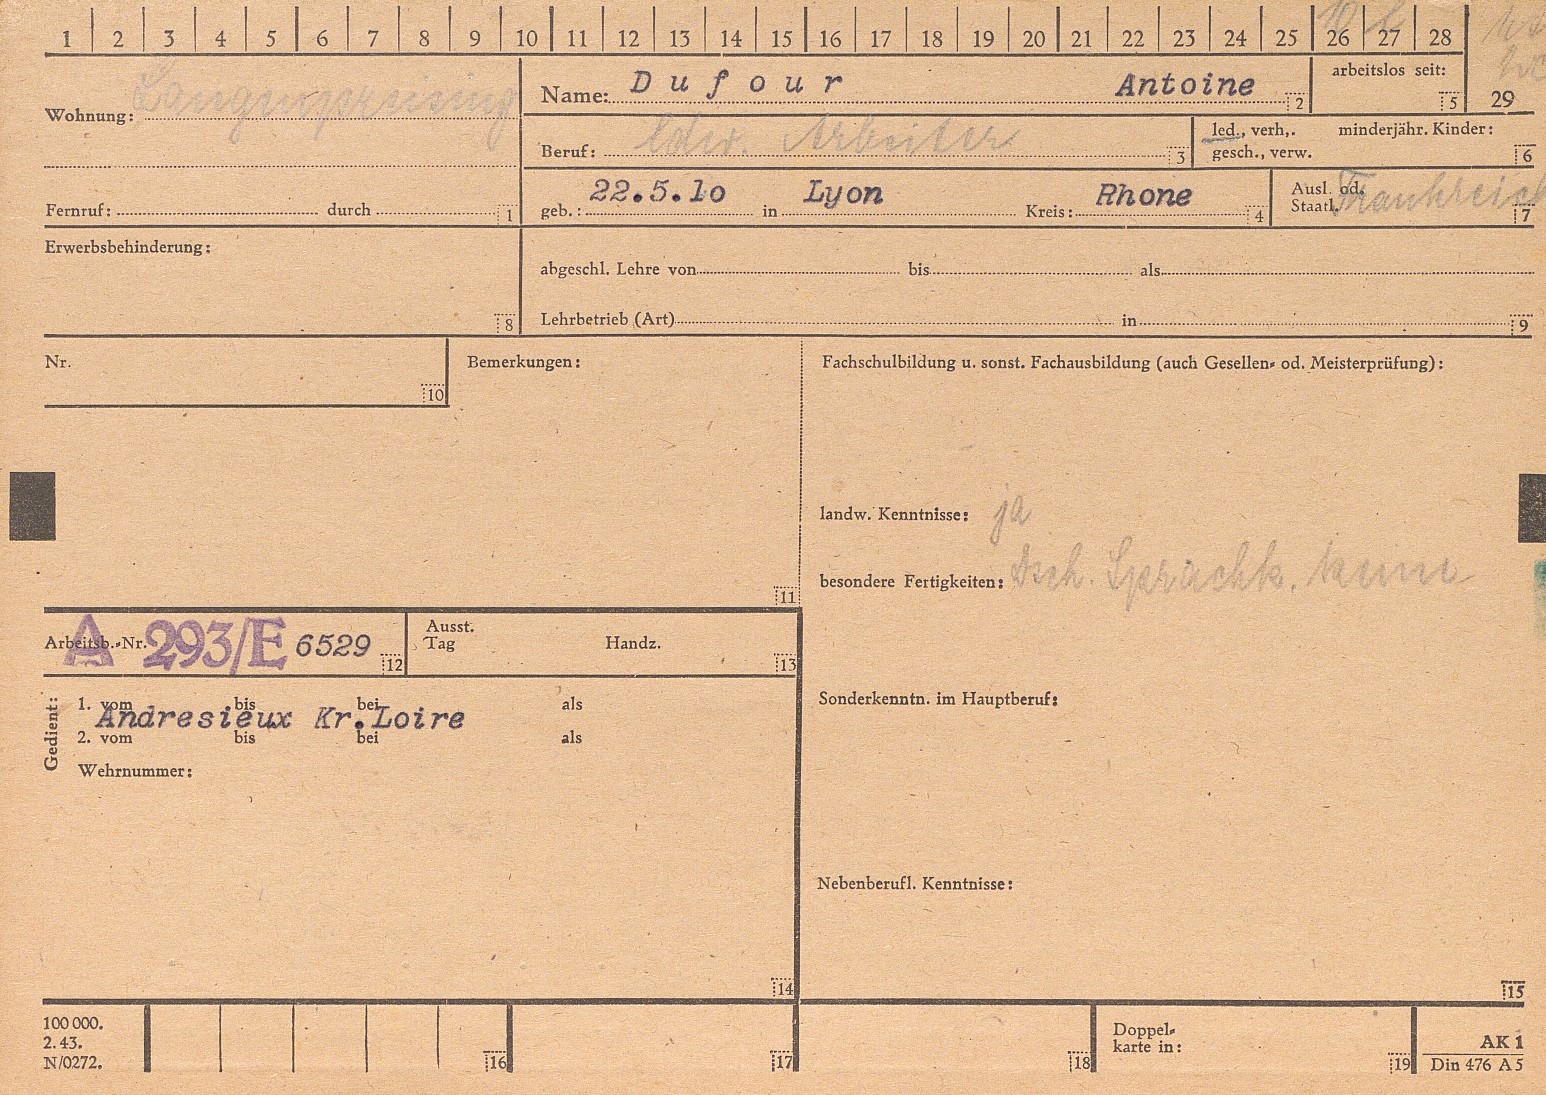 1 2 3 4 5 6 7 8 9 10 11 12 13 14 15 16 17 18 19 20 21 22 23 24 25 26 27 28
29
Wohnung: Langenpreising
Name: Dufour Antoine 2
arbeitslos seit: 5
Beruf: ldw. Arbeiter 3
led., verh,. minderjähr. Kinder:
gesch., verw. 6
Fernruf: durch 1
geb.: 22.5.10 in Lyon Kreis: Rhone 4
Ausl. od.
Staatl. Frankreich 7
Erwerbsbehinderung:
8
abgeschl. Lehre von bis als
Lehrbetrieb (Art) in 9
Nr.
10
Bemerkungen:
11
Fachschulbildung u. sonst. Fachausbildung (auch Gesellen- od. Meisterprüfung):
landw. Kenntnisse: ja
besondere Fertigkeiten: Dsch. Sprachk. keine
Arbeitsb.-Nr. A 293/E 6529 12
Ausst.
Tag Handz. 13
Sonderkenntn. im Hauptberuf:
Gedient:
1. vom bis bei als
Andresieux Kr.Loire
2. vom bis bei als
Wehrnummer:
14
Nebenberufl. Kenntnisse:
15
100 000.
2. 43.
N/0272.
16 17 18
Doppel-
karte in: 19
AK 1
Din 476 A 5